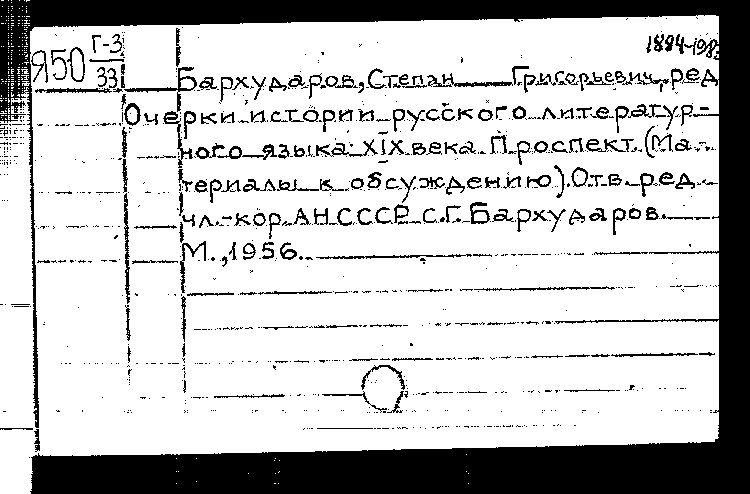 1884-198
Я50 Г-3
33
Бархударов, Степан Григорьевич, ред
Очерки истории русского литератур-
ного языка XIX века. Проспект. (Ма-
териалы к обсуждению). Отв. ред.
чл.-кор. АН СССР С.Г. Бархударов.
М., 1956.